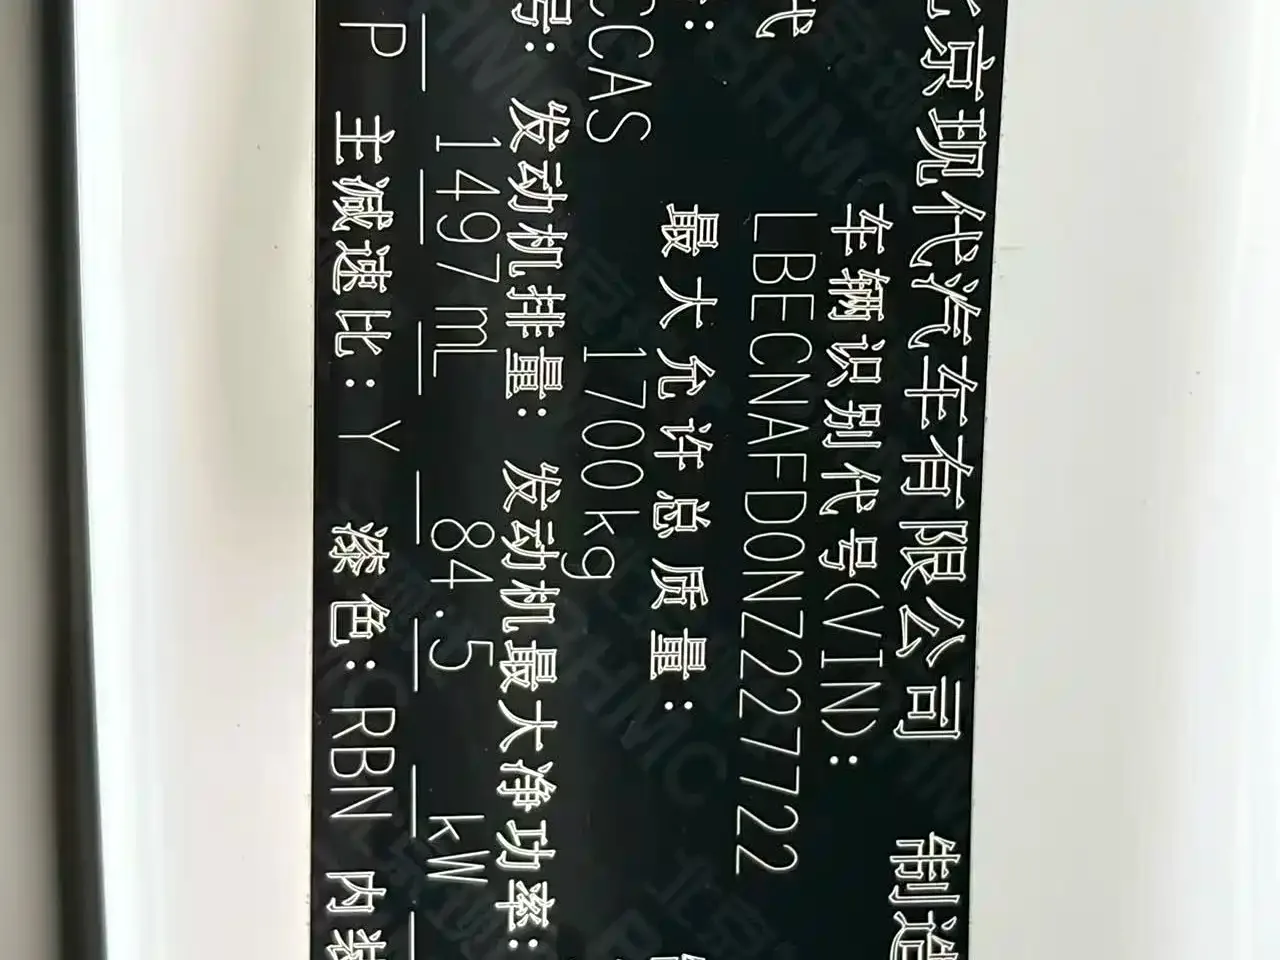 北京现代汽车有限公司 制造
代 车辆识别代号(VIN):
LBECNAFD0NZ227722
最大允许总质量:
CCAS 1700kg
号: 发动机排量: 发动机最大净功率:
1497mL 84.5 kW
P 主减速比: Y 漆色: RBN 内装